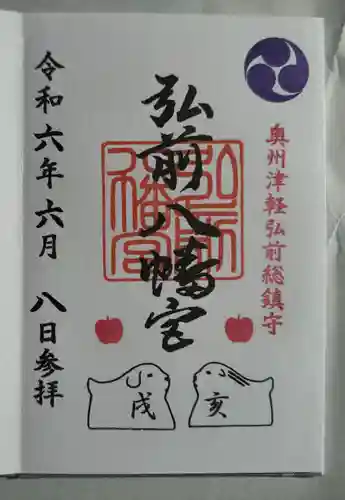 奥州津軽弘前総鎮守
弘前八幡宮
弘前
八幡宮
令和六年六月八日参拝
戌
亥